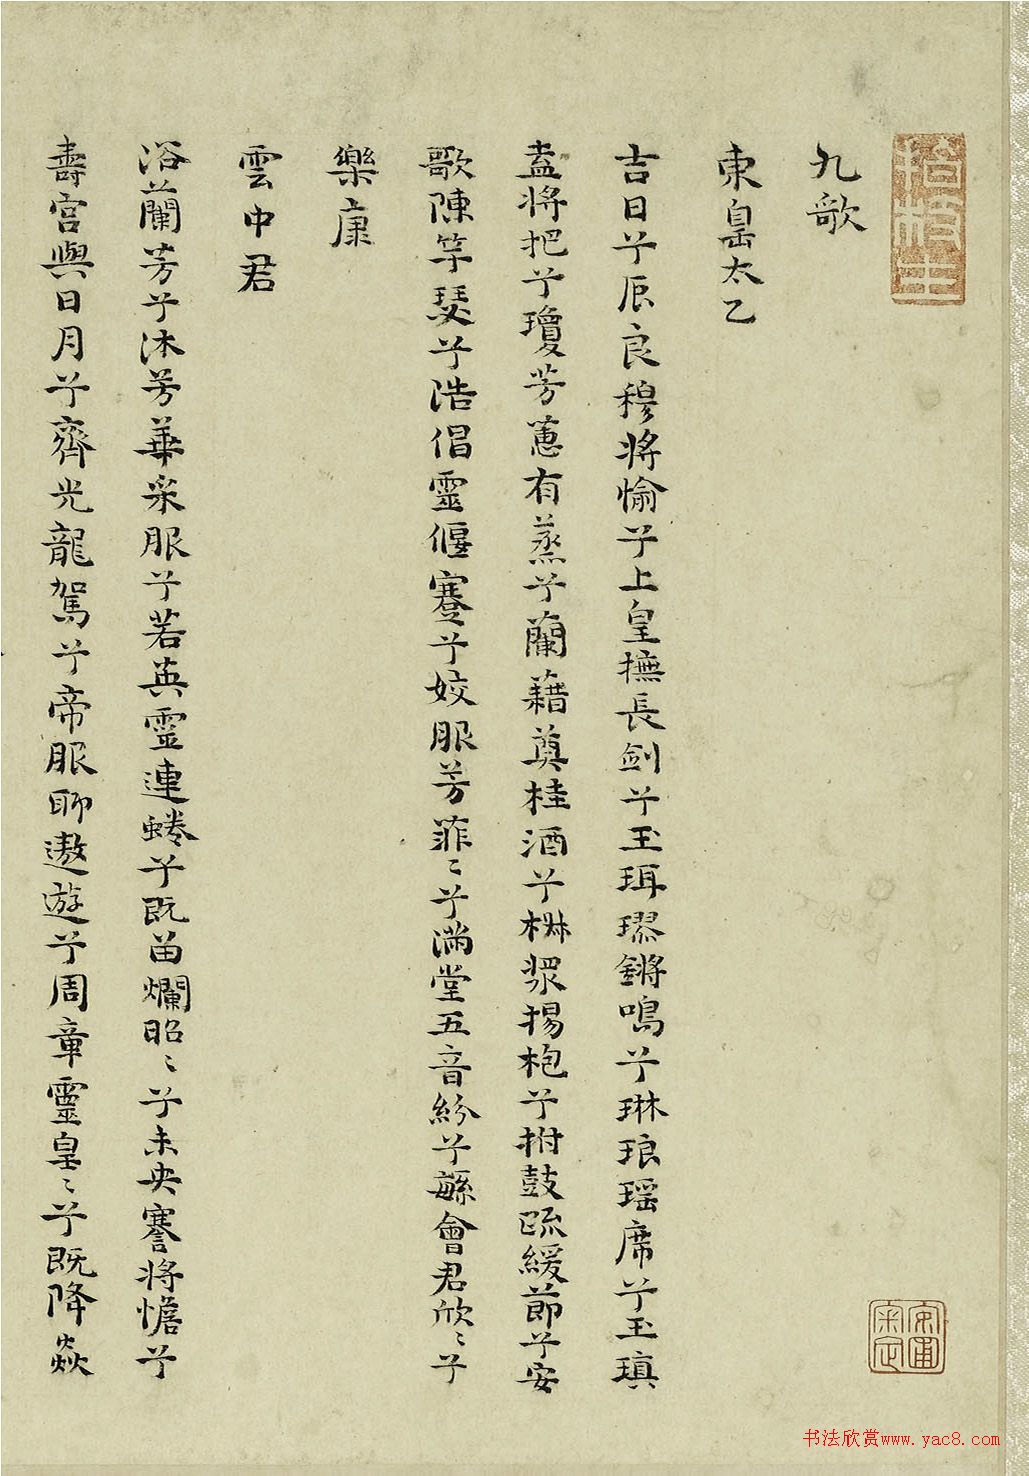 九歌
東皇太乙
吉日兮辰良穆將愉兮上皇撫長劍兮玉珥璆鏘鳴兮琳琅瑶席兮玉瑱
盍將把兮瓊芳蕙有蒸兮蘭藉奠桂酒兮椒漿揚枹兮拊鼓疏緩節兮安
歌陳竽瑟兮浩倡靈偃蹇兮姣服芳菲〻兮滿堂五音紛兮繇會君欣〻兮
樂康
雲中君
浴蘭芳兮沐芳華采服兮若英靈連蜷兮既留爛昭〻兮未央謇將憺兮
壽宮與日月兮齊光龍駕兮帝服聊遨遊兮周章靈皇〻兮既降焱
安甫
書法欣赏www.yac8.com